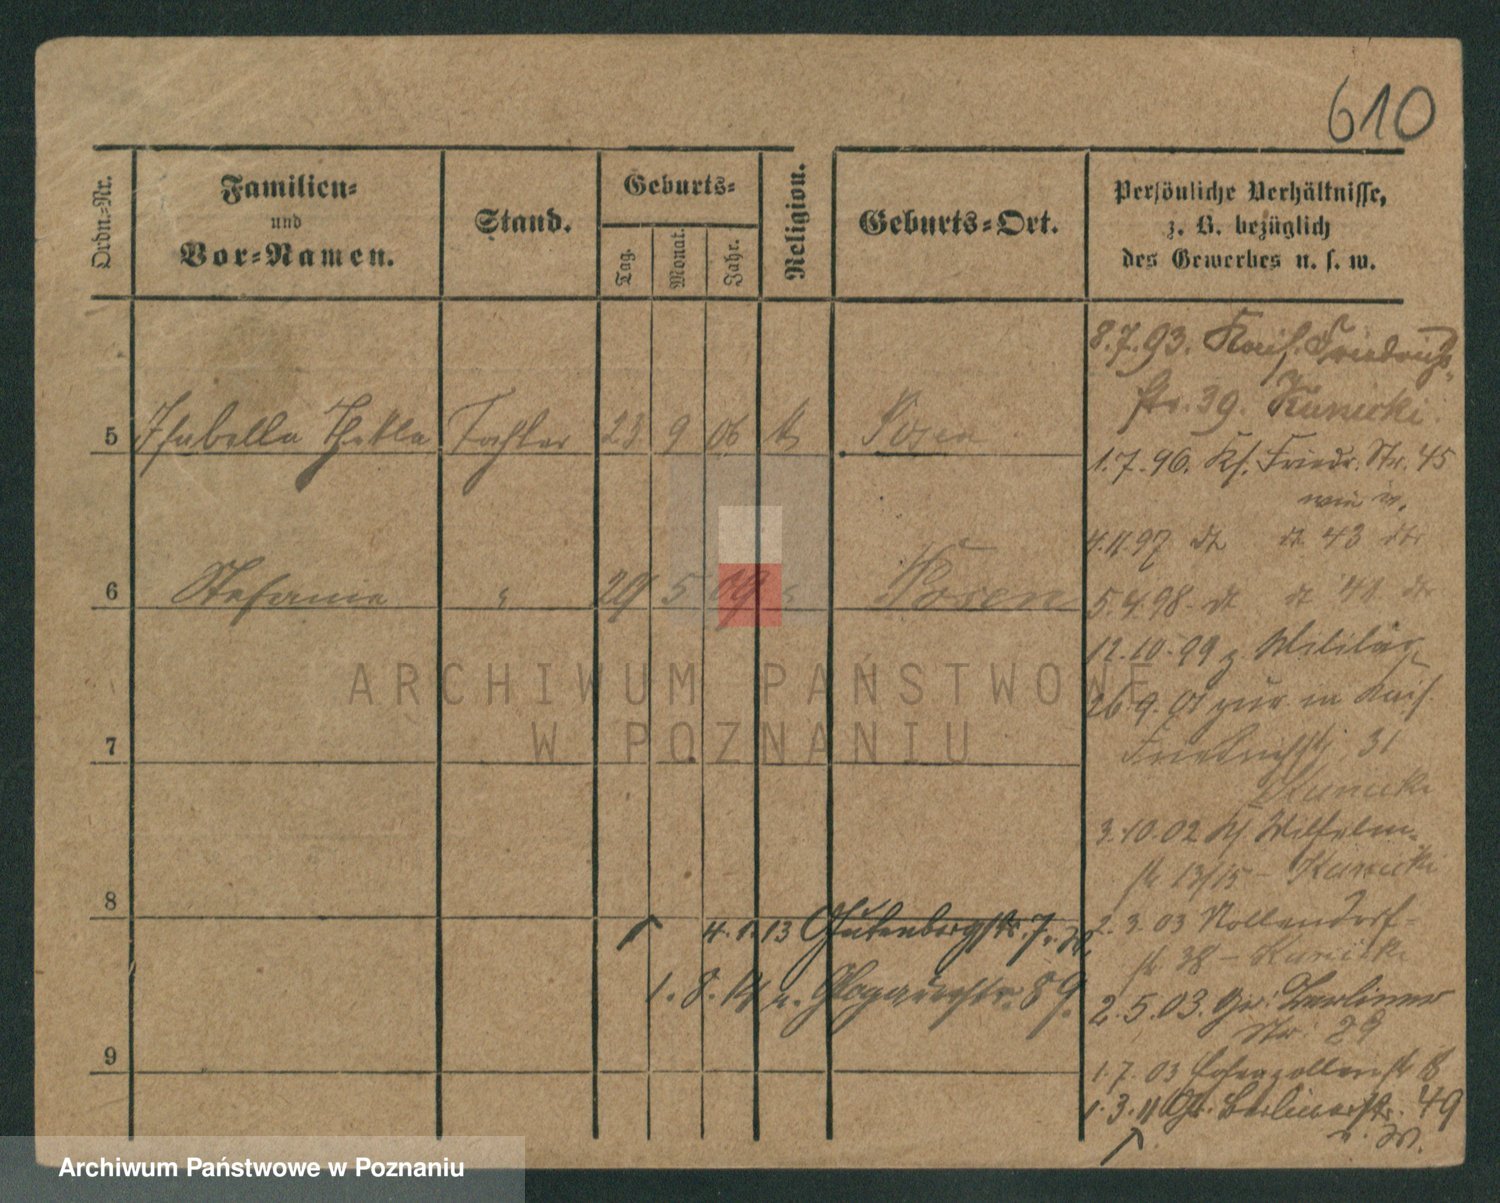 610
Ordn.-Nr.
Familien-
und
Vor-Namen.
Stand.
Geburts-
Tag.
Monat.
Jahr.
Religion.
Geburts-Ort.
Persönliche Verhältnisse,
z. B. bezüglich
des Gewerbes u. s. w.
8.7.93. Kais. Friedrich-
str. 39. Kunicki
5 Isabella Thekla Tochter 23 9 06 k Posen
1.7.96. Ks. Friedr. Str. 45
4.11.97 dt dt 43
6 Stefanie " 29 5 09 " Posen
5.4.98 dt dt 41
12.10.99 z. Militär
26.9.01 zur in Kais.
Friedrichstr 31
Kunicki
7
3.10.02 Ks. Wilhelm-
str 13/15 - Kunicki
8
2.3.03 Nollendorf-
str 38 - Kunicki
4.1.13 Gutenbergstr. 7.
1.8.14 Glogauerstr. 89.
2.5.03. Gr. Berliner
Str. 29
9
1.7.03 Hohenzollernstr
1.3.11 Gr. Berlinerstr. 49
ARCHIWUM PAŃSTWOWE
W POZNANIU
Archiwum Państwowe w Poznaniu